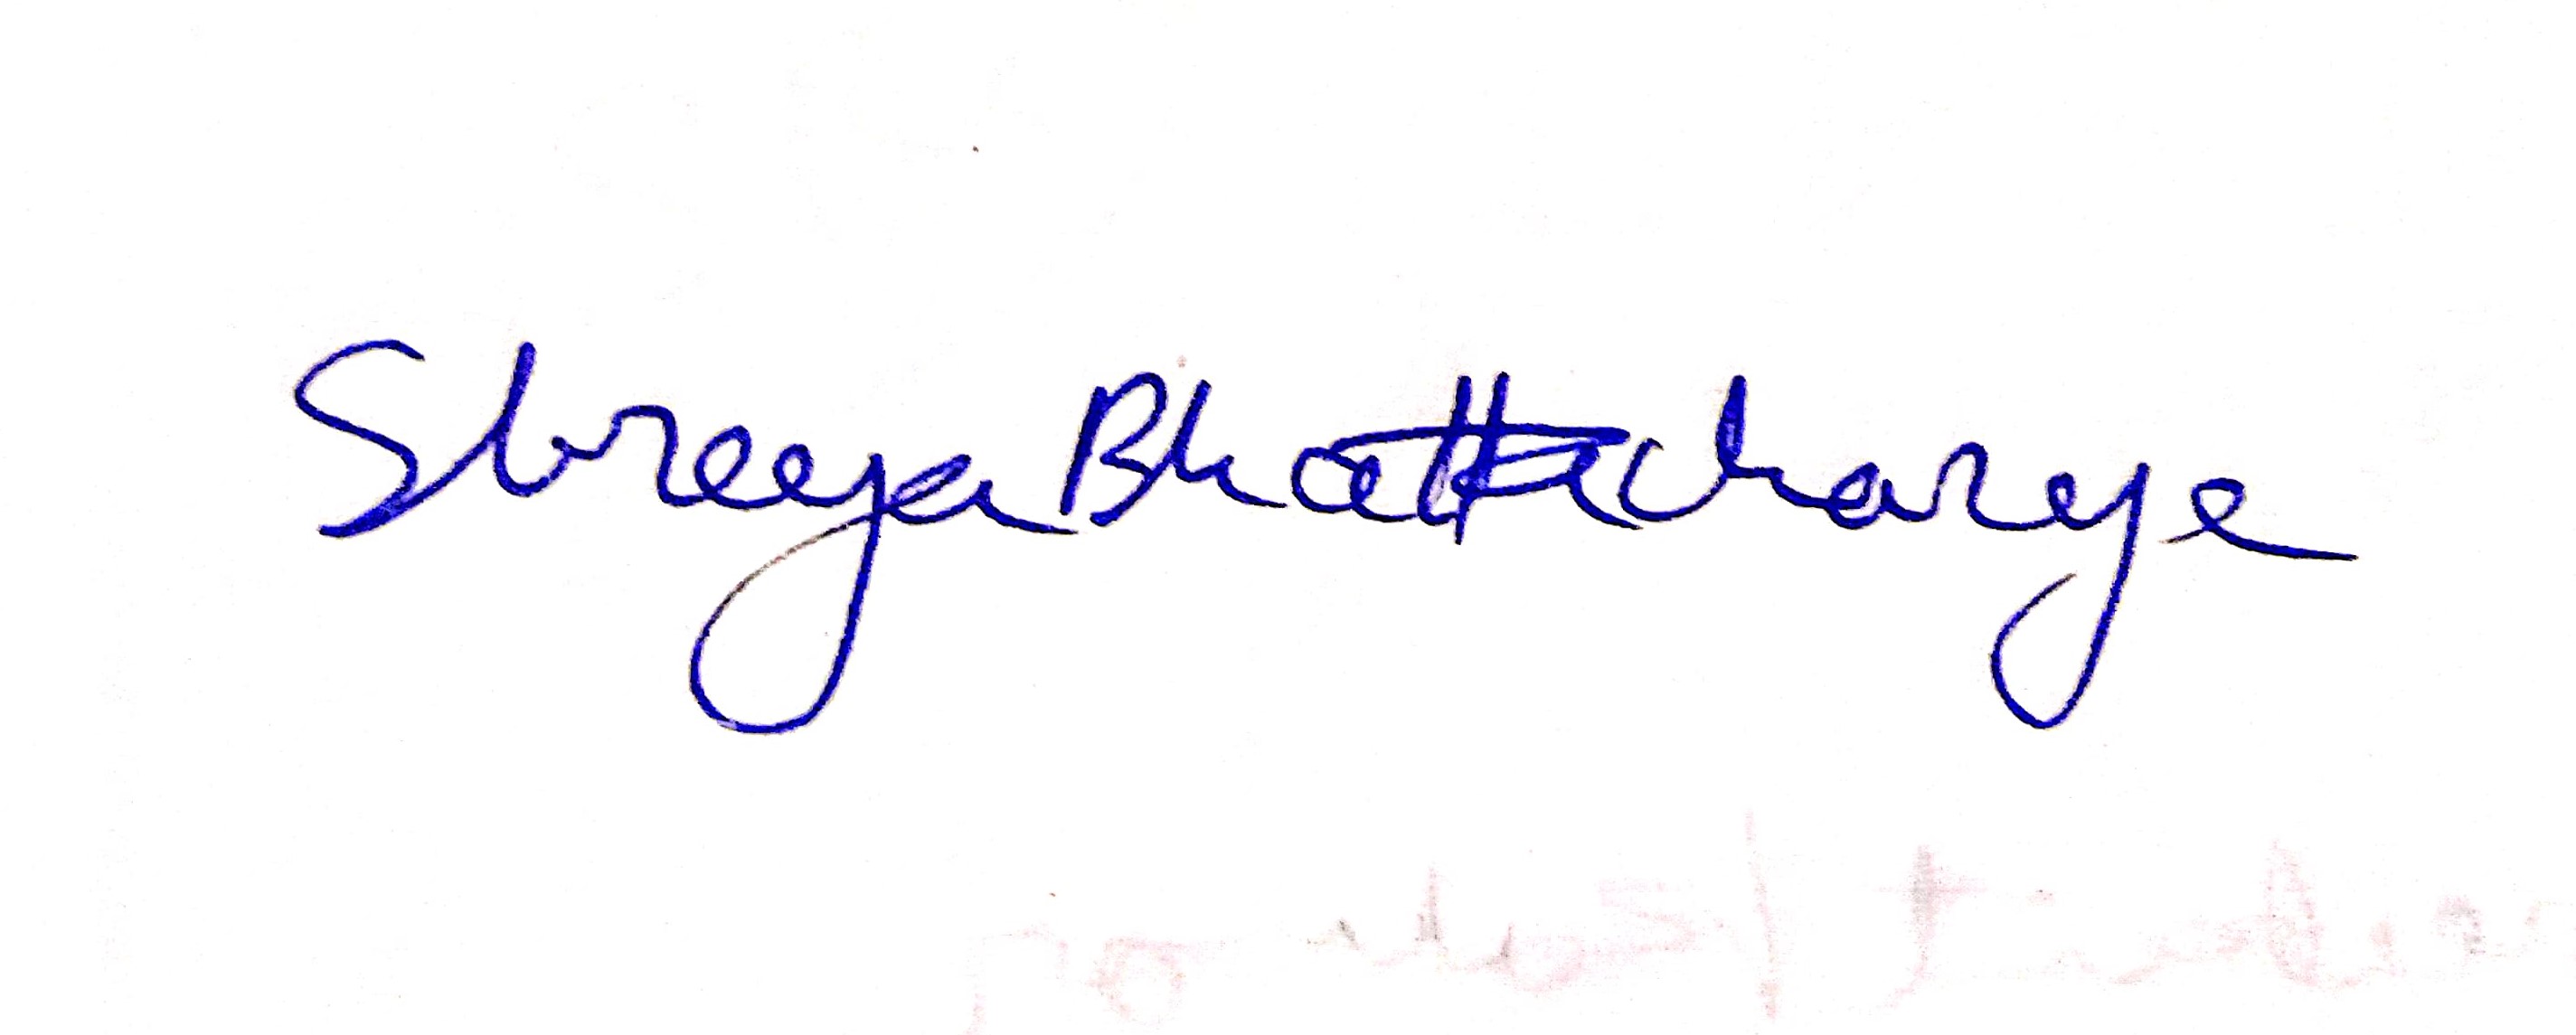 Shreeya Bhattacharye